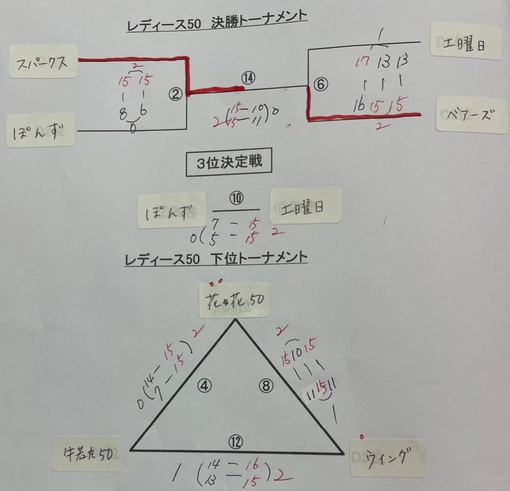 レディース50 決勝トーナメント
1
土曜日
スパークス
2
15 15
8 6
0
②
⑭
2(15-10)0
15-11
⑥
17 13 13
16 15 15
2
ベアーズ
ぽんず
3位決定戦
⑩
ぽんず
土曜日
0(7=15
5=15 2
レディース50 下位トーナメント
花々花50
0(14-15)2
7-15
④
⑧
2
15 10 15
11 15 11
1
⑫
牛若丸50
ウイング
1(14=16)2
13 15